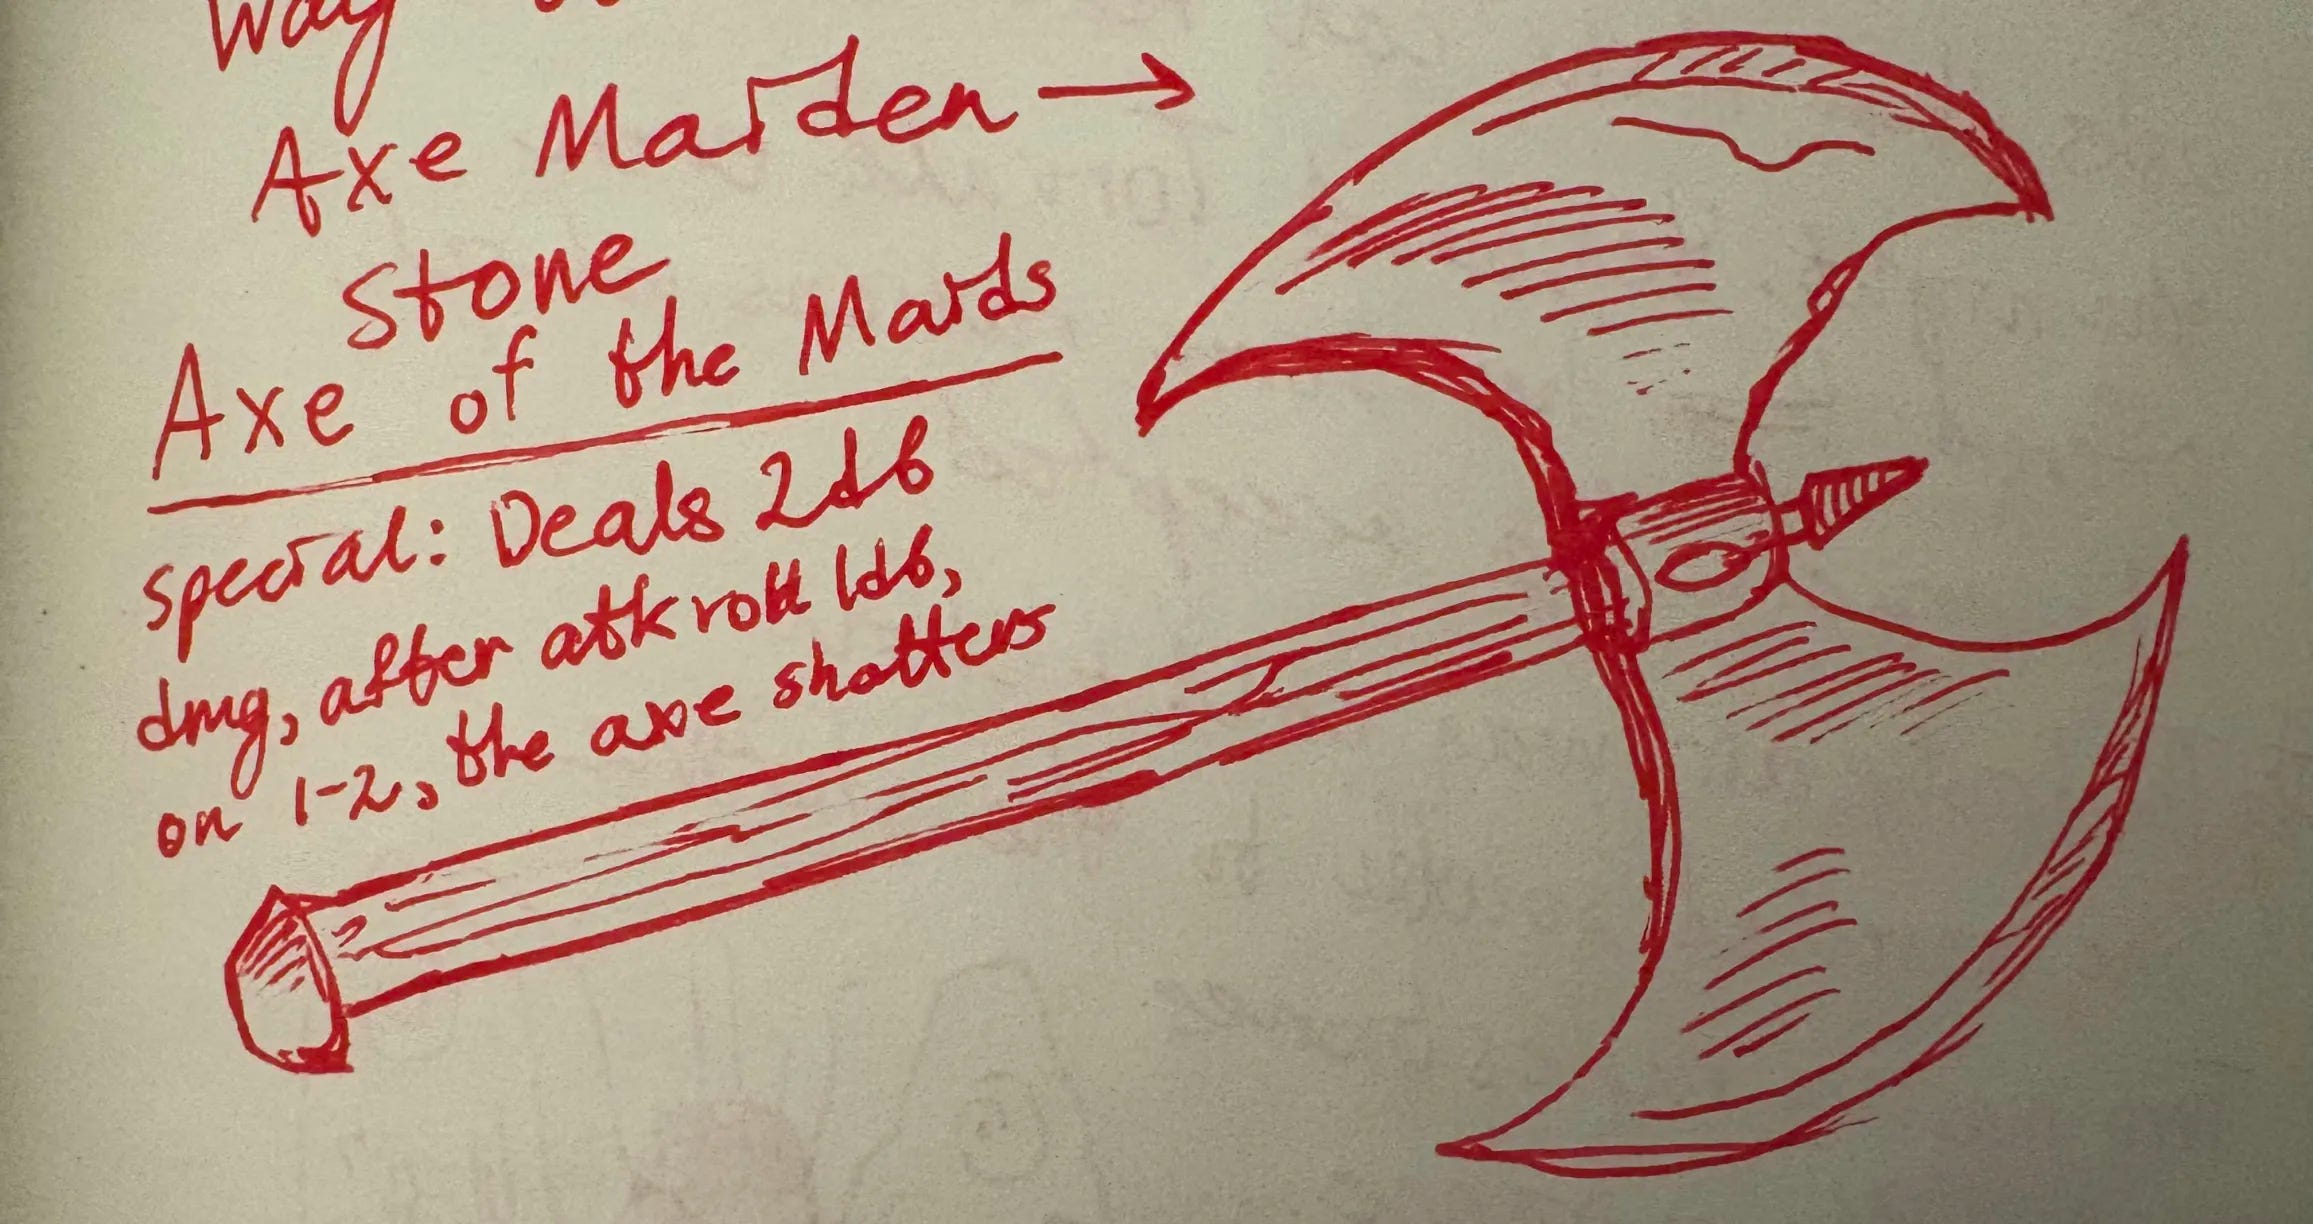 Way
Axe Maiden →
Stone
Axe of the Maids
special: Deals 2d6
dmg, after atk roll 1d6,
on 1-2, the axe shatters